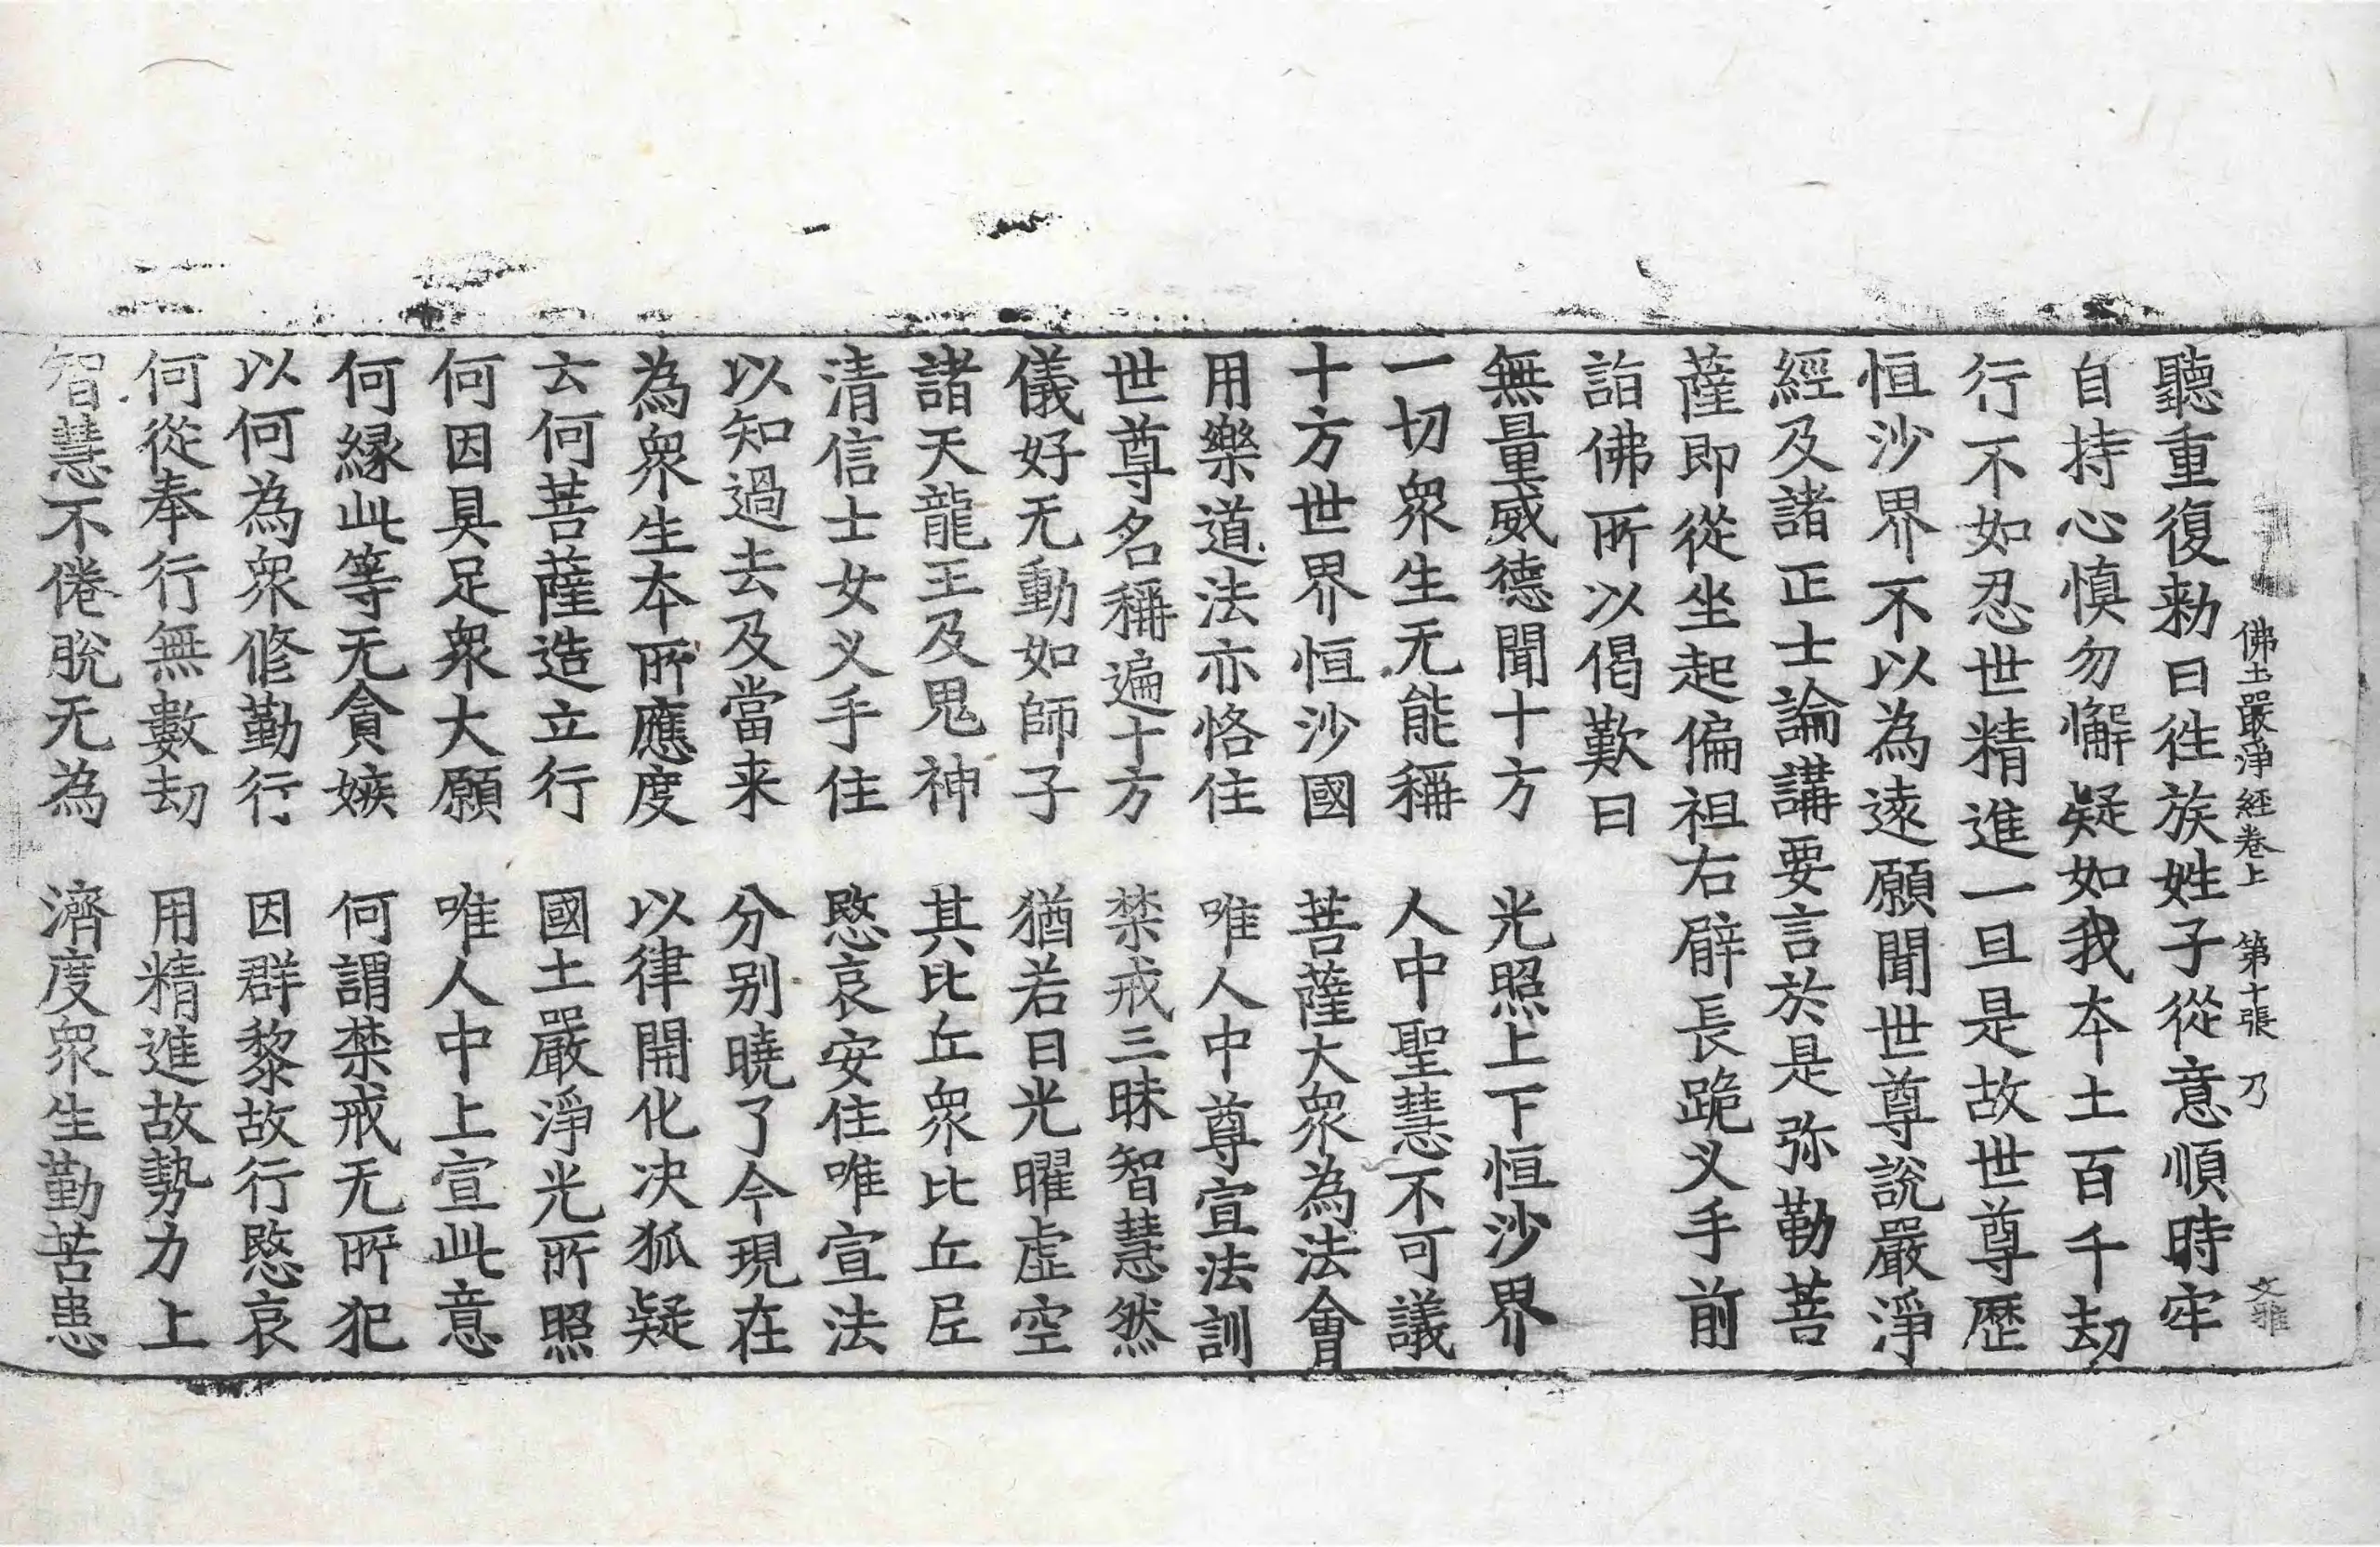 佛土嚴淨經卷上 第十張 乃
聽重復勑曰徃族姓子從意順時牢
自持心慎勿懈疑如我夲土百千劫
行不如忍世精進一旦是故世尊歷
恒沙界不以為遠願聞世尊說嚴淨
經及諸正士論講要言於是弥勒菩
薩即從坐起偏袒右臂長跪义手前
詣佛所以偈歎曰
無量威德聞十方 光照上下恒沙界
一切衆生无能稱 人中聖慧不可議
十方世界恒沙國 菩薩大衆為法會
用樂道法亦恪住 唯人中尊宣法訓
世尊名稱遍十方 禁戒三昧智慧然
儀好无動如師子 猶若日光曜虛空
諸天龍王及鬼神 其比丘衆比丘尼
清信士女义手住 愍哀安住唯宣法
以知過去及當来 分别曉了今現在
為衆生夲所應度 以律開化决狐疑
云何菩薩造立行 國土嚴淨光所照
何因具足衆大願 唯人中上宣此意
何縁此等无貪嫉 何謂禁戒无所犯
以何為衆修勤行 因群黎故行愍哀
何從奉行無數劫 用精進故勢力上
智慧不倦脫无為 濟度衆生勤苦患